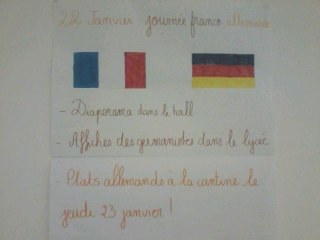 22 Janvier journée franco allemande
- Diaporama dans le hall
- Affiches des germanistes dans le lycée
- Plats allemands à la cantine le
jeudi 23 janvier !